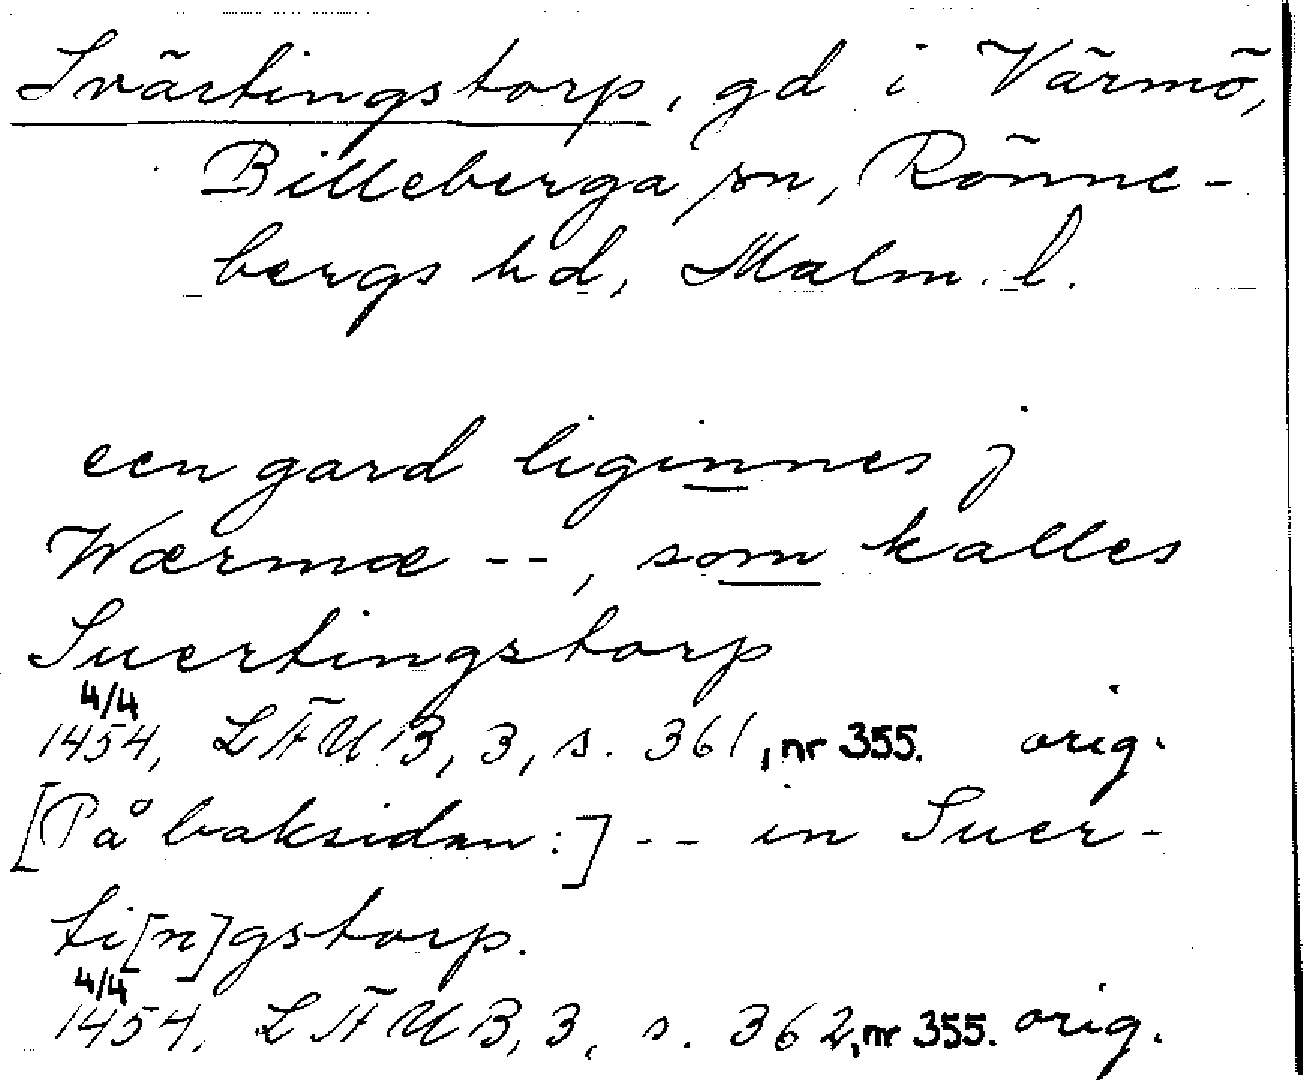 Svärtingstorp, gd i Värmö,
Billeberga sn, Rönne-
bergs hd, Malm. l.
een gard liginnes j
Wærmæ --, som kalles
Suertingstorp
4/4
1454, LÄUB, 3, s. 361, nr 355. orig.
[På baksidan:] -- in Suer-
ti[n]gstorp.
4/4
1454, LÄUB, 3, s. 362, nr 355. orig.